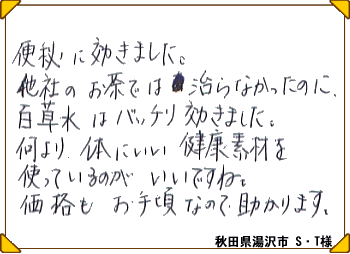 便秘に効きました。
他社のお茶では治らなかったのに、
百草水はバッチリ効きました。
何より、体にいい健康素材を
使っているのがいいですね。
価格もお手頃なので助かります。
秋田県湯沢市 S・T様